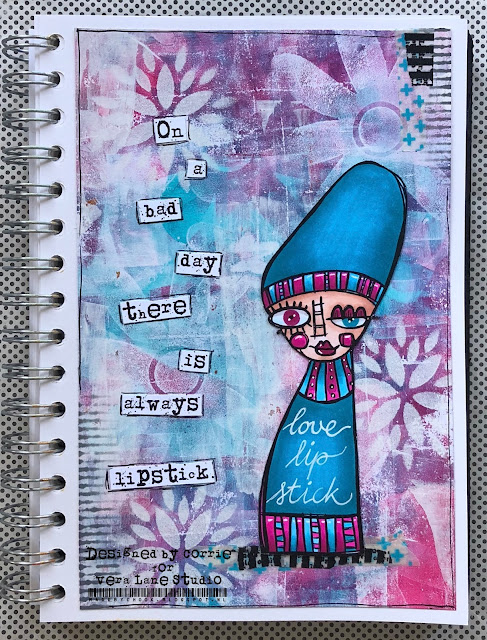 On
a
bad
day
there
is
always
lipstick.
love
lip
stick
Designed by Corrie
for
Vera Lane Studio